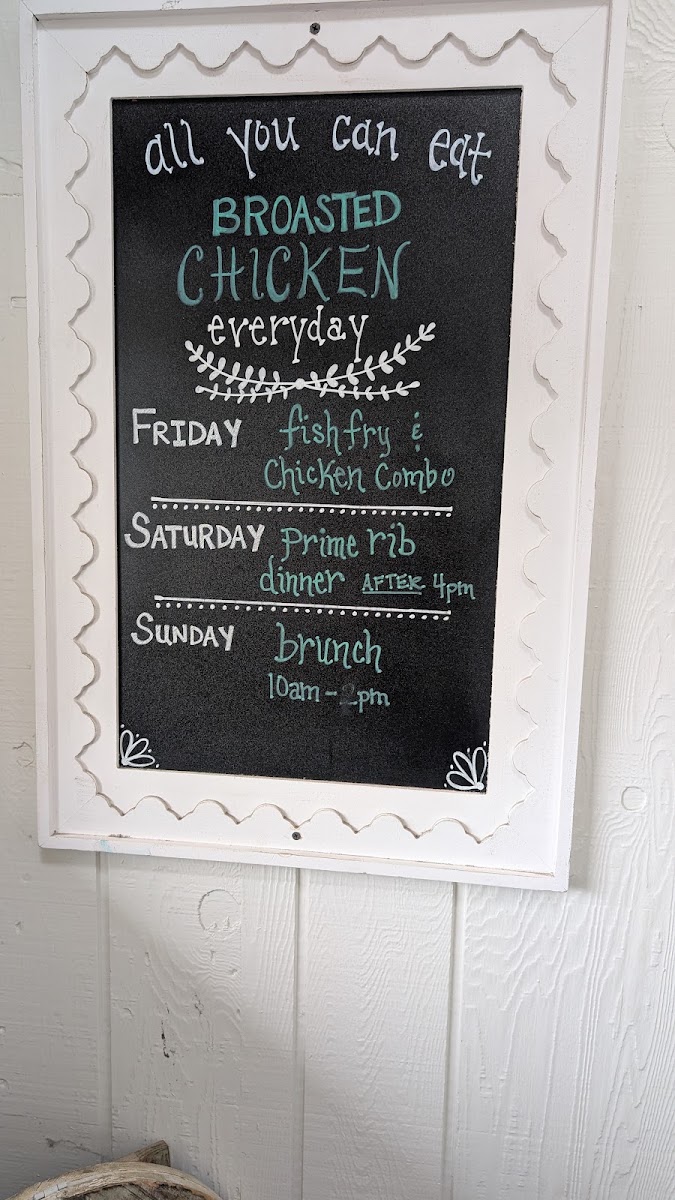 all you can eat
BROASTED
CHICKEN
everyday
FRIDAY fish fry &
Chicken Combo
SATURDAY prime rib
dinner AFTER 4pm
SUNDAY brunch
10am - 2pm